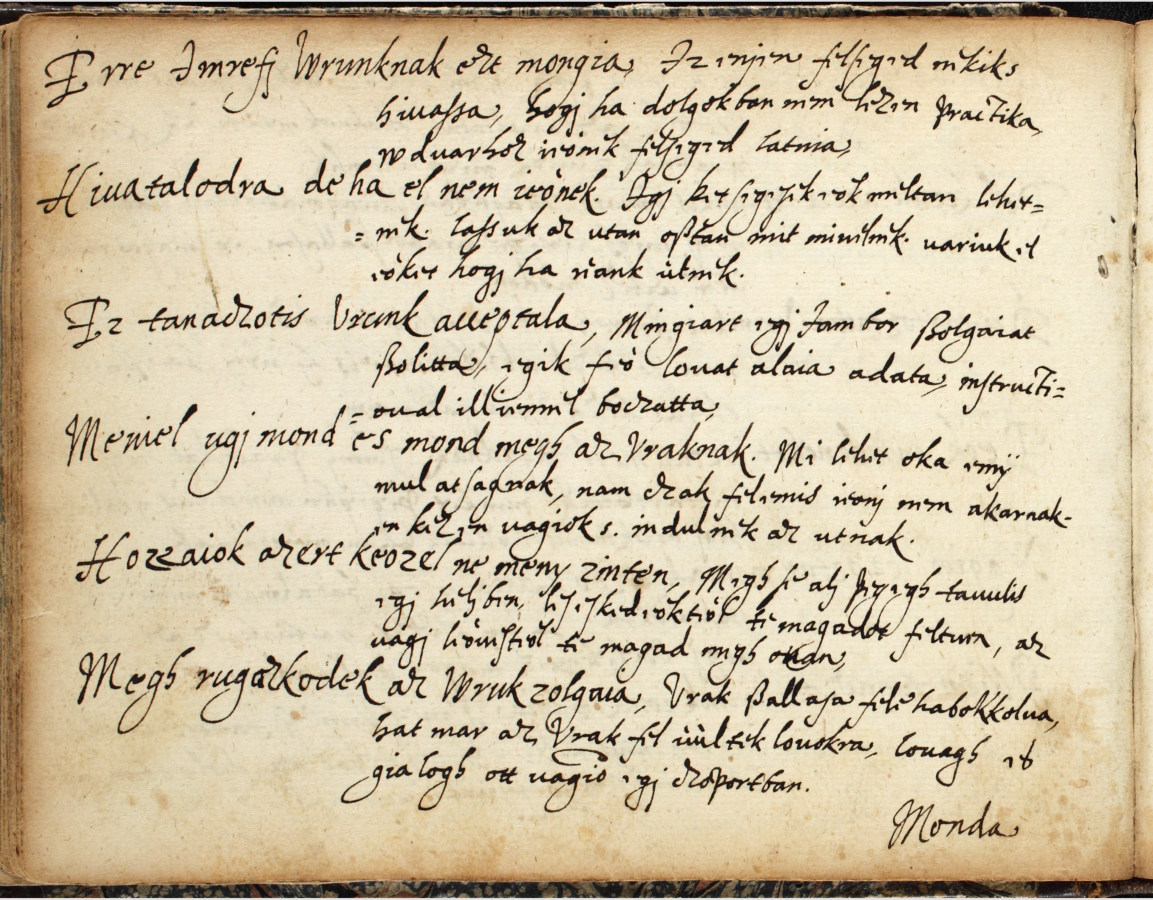 Erre Imrefj Wrunknak ezt mongia, Iz enjen felseged nekik s
hiuassa, hogj ha dolgokban nem lezen practika,
wduarhoz ieonek felseged latnia,
Hiuatalodra de ha el nem ieönek. Igj ketsegesek eök meltan lehet=
= nek. lassuk az utan oßtan mit miuelnek. variuk el
eöket hogj ha reank ütnek.
Ez tanadzotis Vrunk acceptala, Mingiart egj Jambor ßolgaiat
ßolitta, egik feö louat alaia adata, instructi=
= oual illiennel bodzatta,
Meniel ugj mond es mond megh az Vraknak. Mi lehet oka enÿ
mulatsagnak, nam dzak felemis ieonj nem akarnak-
en kezen vagiok s. indulnek az utnak.
Hozzaiok azert keozel ne meny zinten, Megh se alj penegh tauulis
egj heljben, leselked eöktöl te magadot feltuen, az
vagj leöuestöl te magad megh ouan,
Megh rugazkodek az Wruk zolgaia, Vrak ßallasa fele habokkolua,
hat mar az Vrak fel üültek louokra, louagh es
gialogh ott vagio egj dzoportban.
Monda